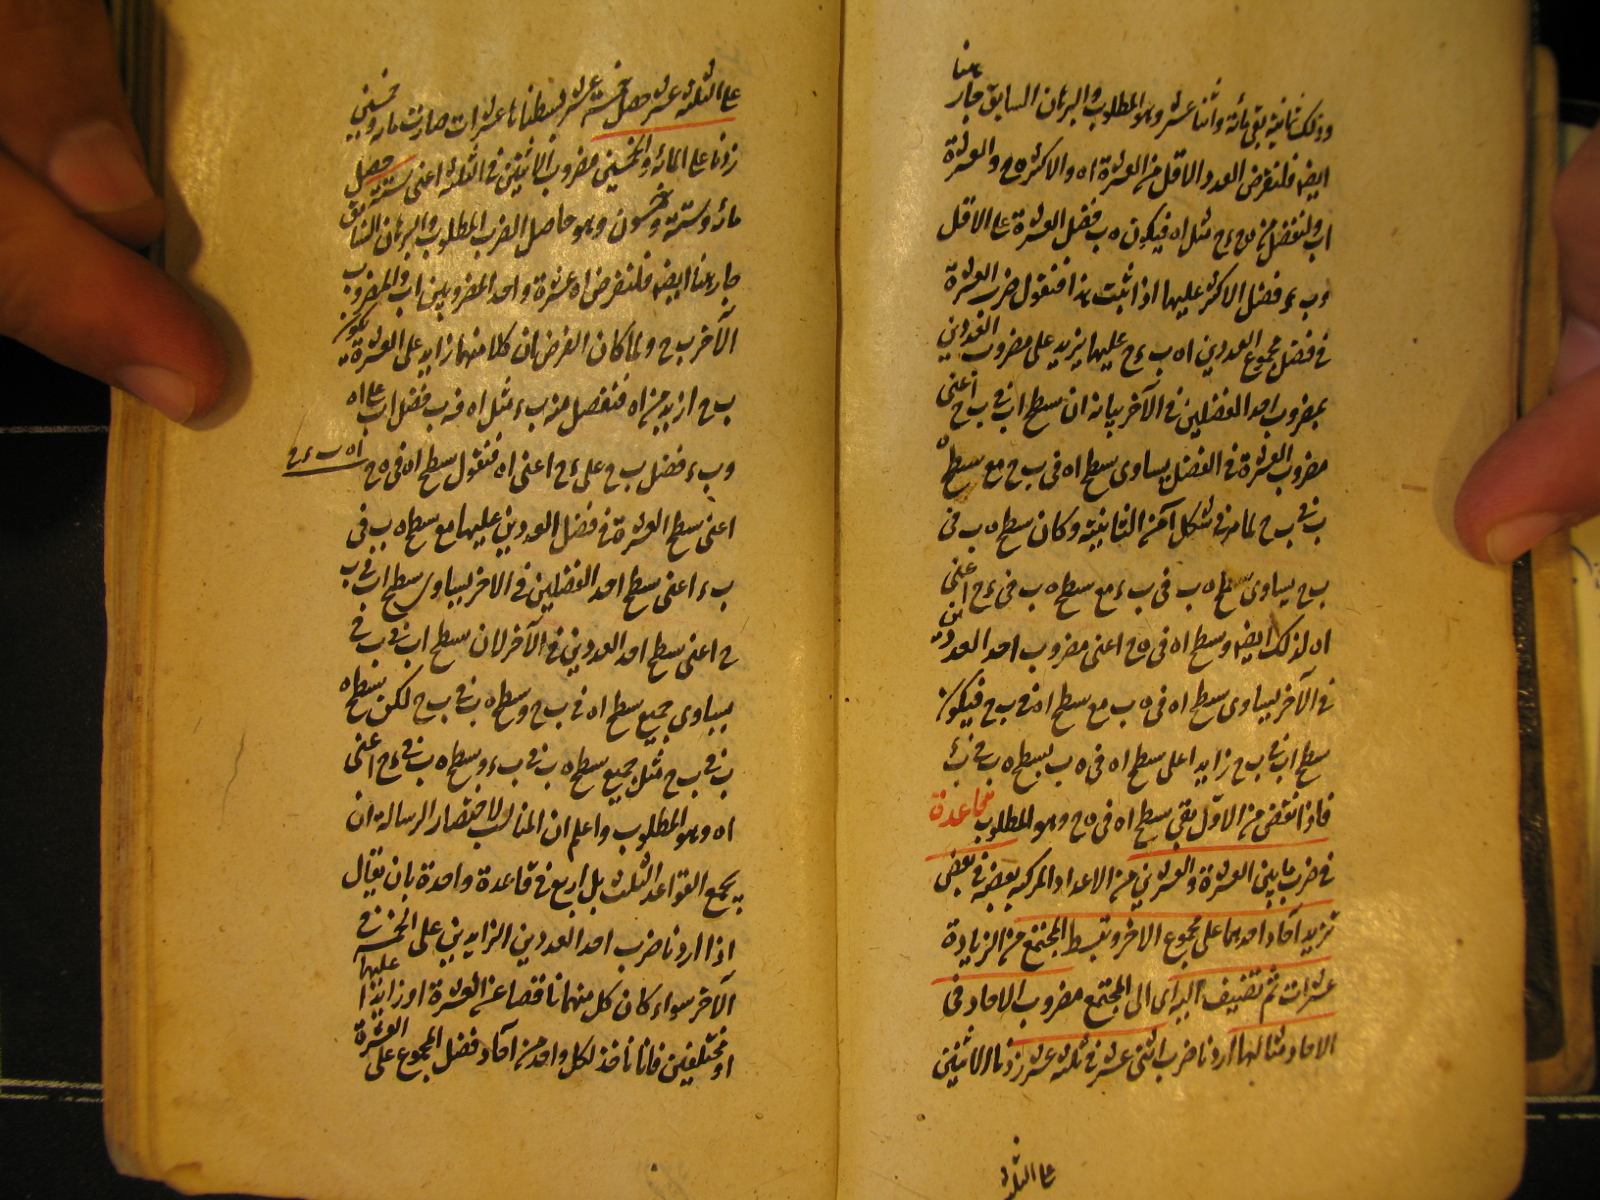 وذلك ثمانية بقى مائة واثنا عشر وهو المطلوب والبرهان السابق جار هنا
ايضا فلنفرض العدد الاقل من العشرة اه والاكثر ه ح والعشرة
اب ولنفضل من ح ء ح مثل اه فيكون ه ب فضل العشرة على الاقل
وب ء فضل الاكثر عليها اذا ثبت هذا فنقول ضرب العشرة
فى فضل مجموع العددين اه ب ء ح عليها يزيد على مضروب العددين
بمضروب احد الفضلين فى الآخر بيانه ان سطح اب فى ب ح اعنى
مضروب العشرة فى الفضل يساوى سطح اه فى ب ح مع سطح ه
ب فى ب ح لما مر فى شكل آ من الثانية وكان سطح ه ب فى
ب ح يساوى سطح ه ب فى ب ء مع سطح ه ب فى ء ح اعنى
اه لذلك ايضا وسطح اه فى ه ح اعنى مضروب احد العددين
فى الآخر يساوى سطح اه فى ه ب مع سطح اه فى ب ح فيكون
سطح اب فى ب ح زايدا على سطح اه فى ه ب بسطح ه ب فى ب ء
فاذا نقض من الاول بقى سطح اه فى ه ح وهو المطلوب قاعدة
فى ضرب ما بين العشرة والعشرين من الاعداد المركبة بعضه فى بعض
تزيد آحاد احدهما على مجموع الاخر وتبسط المجتمع من الزيادة
عشرات ثم تضيف البراى الى المجتمع مضروب الاحاد فى
الاحاد مثالها اردنا ضرب اثنى عشر فى ثلثة عشر زدنا الاثنين
على الثلثة
على الثلثة عشر حصل خمسة عشر بسطناها عشرات صارت مائة وخمسين
زدنا على المائة والخمسين مضروب الاثنين فى الثلثة اعنى ستة حصل
مائة وستة وخمسون وهو حاصل الضرب المطلوب والبرهان السابق
جار هنا ايضا فلنفرض اه عشرة واحد المضروبين اب والمضروب
الآخر ب ح ولما كان الفرض ان كلا منهما زايد على العشرة يكون
ب ح ازيد من اه فنفصل منه ب ء مثل اه فه ب فضل اب على اه
وب ء فضل ب ح على ء ح اعنى اه فنقول سطح اه فى ه ح
اه ب ء ح
اعنى سطح العشرة فى فضل العددين عليها مع سطح ه ب فى
ب ء اعنى سطح احد الفضلين فى الاخر يساوى سطح اب فى ب
ح اعنى سطح احد العددين فى الآخر لان سطح اب فى ب ح
يساوى جميع سطح اه فى ب ح وسطح ه ب فى ب ح لكن سطح ه
ب فى ب ح مثل جميع سطح ه ب فى ب ء وسطح ه ب فى ء ح اعنى
اه وهو المطلوب واعلم ان المناسب لاختصار الرسالة ان
يجمع القواعد الثلث بل اربع فى قاعدة واحدة بان يقال
اذا اردنا ضرب احد العددين الزايدين على الخمسة فى
الآخر سواء كان كل منهما ناقصا عن العشرة او زايدا عليها
او مختلفين فانا ناخذ لكل واحد من آحاد فضل المجموع على العشرة